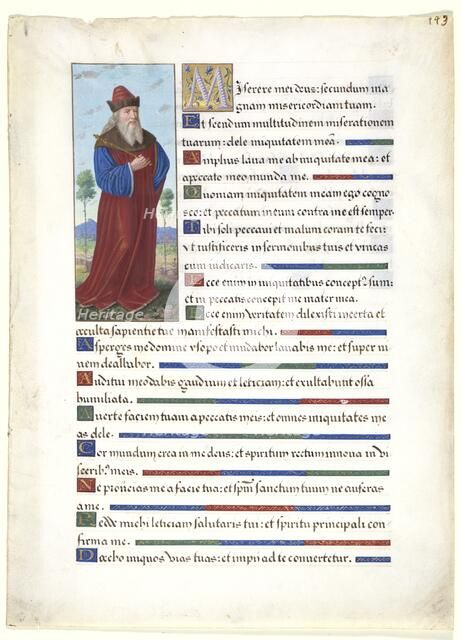 193
Miserere mei deus: secundum ma
gnam misericordiam tuam.
Et scdum multitudinem miserationem
tuarum: dele iniquitatem meā.
Amplius laua me ab iniquitate mea: et
a peccato meo munda me.
Quoniam iniquitatem meam ego cogno
sco: et peccatum meum contra me est semper.
Tibi soli peccaui et malum coram te feci:
vt iustificeris in sermonibus tuis et vincas
cum iudicaris.
Ecce enim in iniquitatibus concept9 sum:
et in peccatis concepit me mater mea.
Ecce enim veritatem dilexisti incerta et
occulta sapientie tue manifestasti michi.
Asperges me domine ysopo et mūdabor lauabis me: et super ni
uem dealbabor.
Auditui meo dabis gaudium et leticiam: et exultabunt ossa
humiliata.
Auerte faciem tuam a peccatis meis: et omnes iniquitates me
as dele.
Cor mundum crea in me deus: et spiritum rectum innoua in vi
scerib9 meis.
Ne proiicias me a facie tua: et spm̄ sanctum tuum ne auferas
a me.
Redde michi leticiam salutaris tui: et spiritu principali con
firma me.
Docebo iniquos vias tuas: et impii ad te conuertetur.
Heritage
Heritage